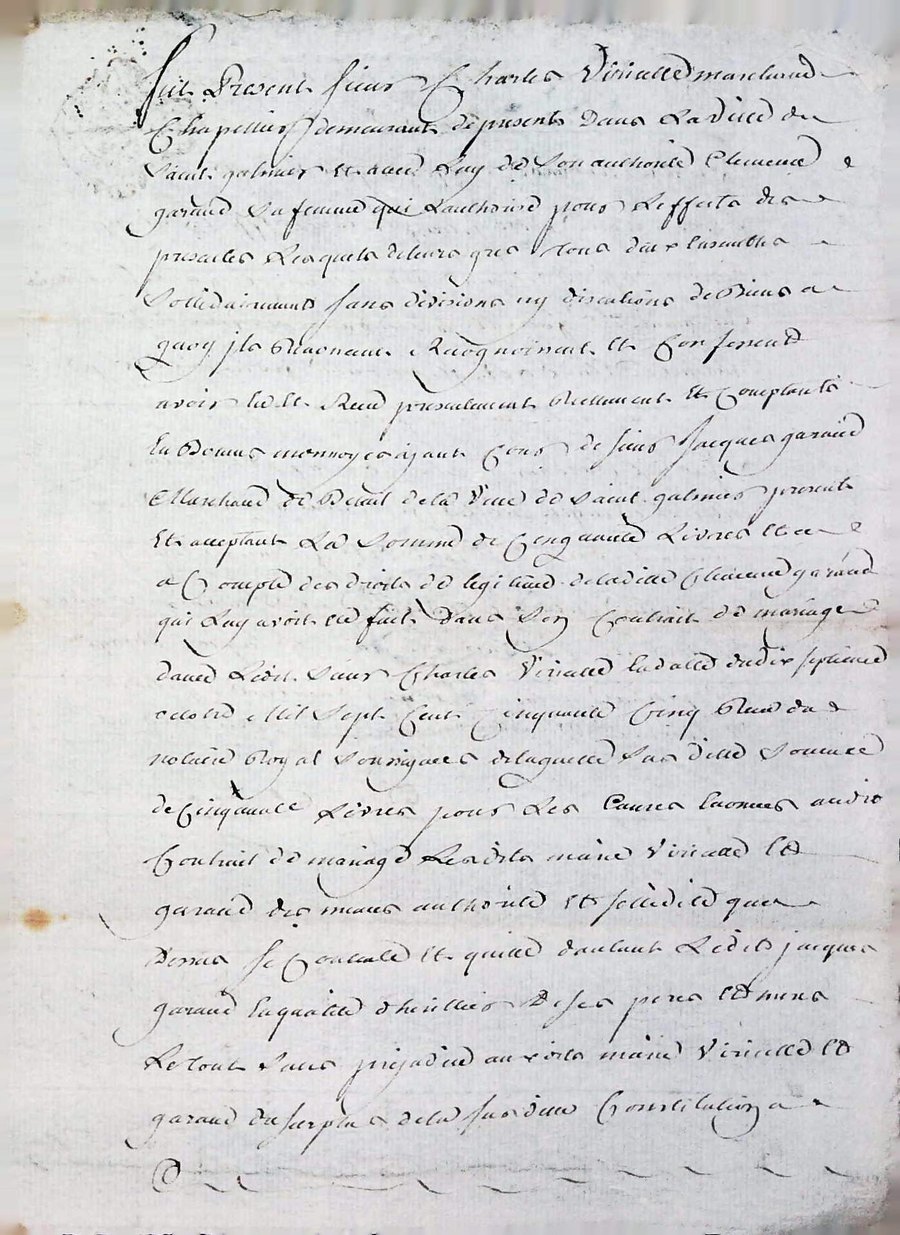 fut Present sieur Charles Virialle marchand
Chapellier demeurant de present dans La ville de
Saint galmier et avec Luy de Son authorité Clemence
garand Sa femme qui Lauthorise pour Leffects des
presentes Lesquels de leurs gres tous deux Ensembles
Sollidairement sans divisions ny discutions de Biens a
quoy jls Renoncent Recognoissent et Confessent
avoir heu et Receu presentement Reellement et Comptants
En Bonnes monnoyes ayant Cours de sieur Jacques garand
Marchand de Detail de la Ville de Saint galmier present
Et acceptant La Somme de Cinquante Livres et ce
a Compte des droits de legitime de laditte Clemence garand
qui Luy avoit eté fait Dans Son Contrait de mariage
davec Ledit Sieur Charles Virialle En datte du dix septieme
octobre Mil Sept Cent Cinquante Cinq Receu du
notaire Royal Soussignes de laquelle Susditte Somme
de Cinquante Livres pour Les Causes Enonces audit
Contrait de mariage Lesdits marie Virialle et
garand des mesmes authorité et sollidité que
Dessus se Contente et quitte dautant Ledit jacques
garand En qualité dherittier De ses pere et mere
Le tout Sans prejudice auxdits marie Virialle et
garand du surplus de la susditte Constitution